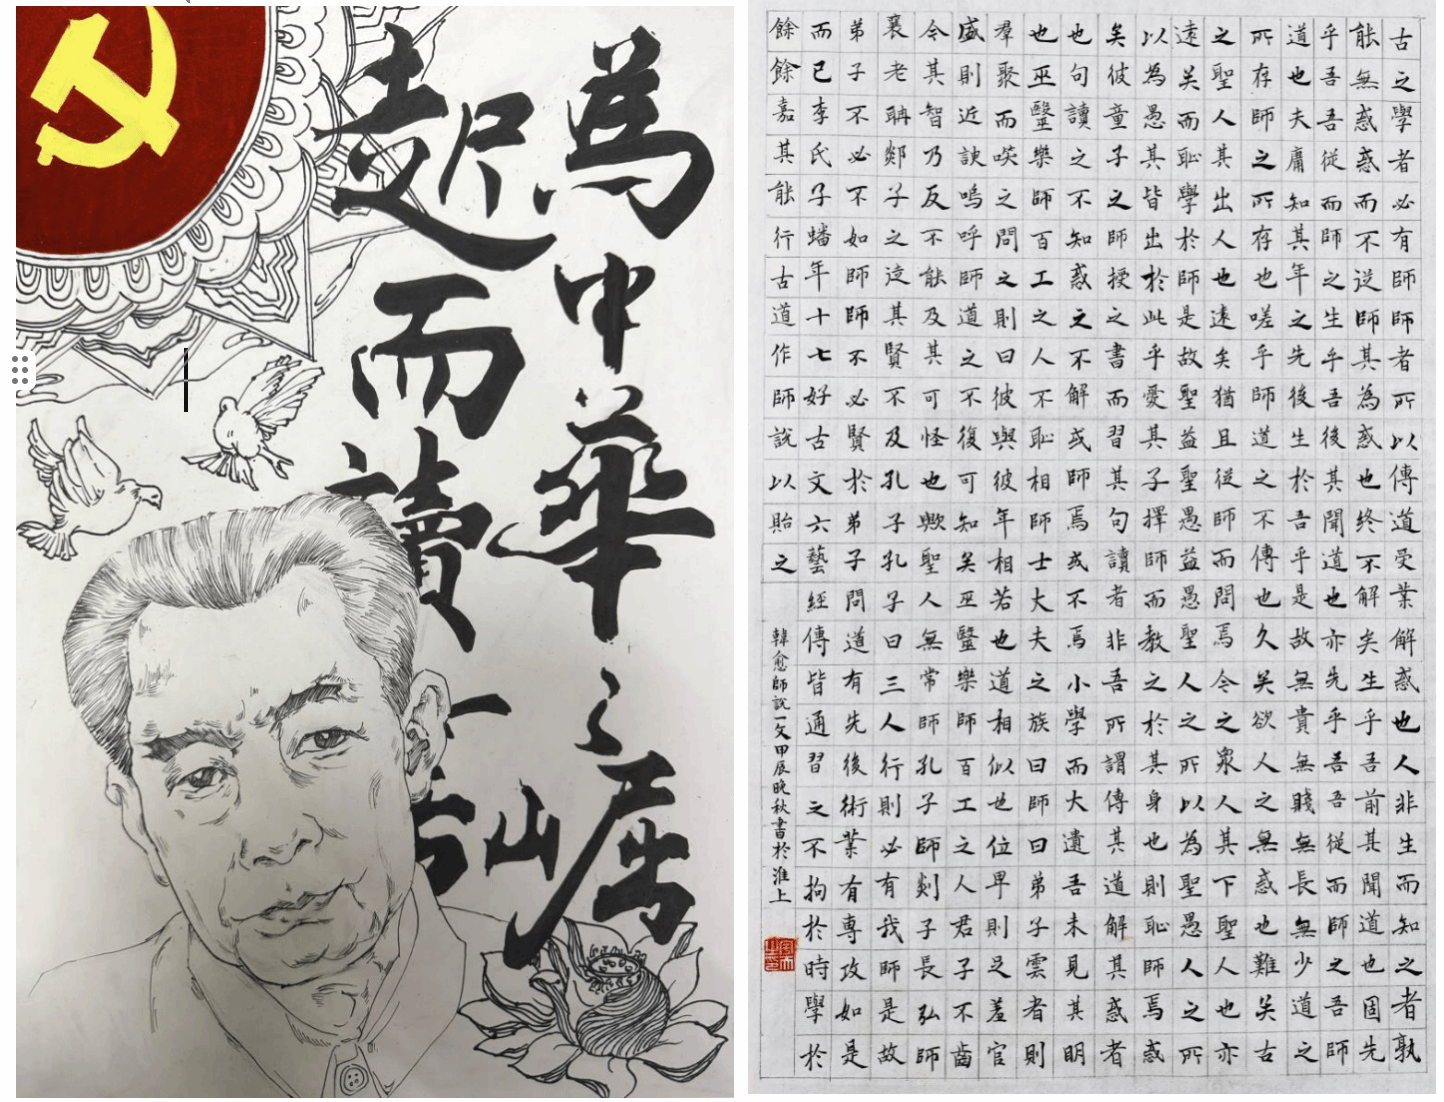 為中華之崛
起而讀
古之學者必有師師者所以傳道受業解惑也人非生而知之者孰
能無惑惑而不從師其為惑也終不解矣生乎吾前其聞道也固先
乎吾吾從而師之生乎吾後其聞道也亦先乎吾吾從而師之吾師
道也夫庸知其年之先後生於吾乎是故無貴無賤無長無少道之
所存師之所存也嗟乎師道之不傳也久矣欲人之無惑也難矣古
之聖人其出人也遠矣猶且從師而問焉今之眾人其下聖人也亦
遠矣而恥學於師是故聖益聖愚益愚聖人之所以為聖愚人之所
以為愚其皆出於此乎愛其子擇師而教之於其身也則恥師焉惑
矣彼童子之師授之書而習其句讀者非吾所謂傳其道解其惑者
也句讀之不知惑之不解或師焉或不焉小學而大遺吾未見其明
也巫醫樂師百工之人不恥相師士大夫之族曰師曰弟子雲者則
羣聚而笑之問之則曰彼與彼年相若也道相似也位卑則足羞官
盛則近諛嗚呼師道之不復可知矣巫醫樂師百工之人君子不齒
今其智乃反不能及其可怪也歟聖人無常師孔子師剡子長弘師
襄老聃郯子之徒其賢不及孔子孔子曰三人行則必有我師是故
弟子不必不如師師不必賢於弟子問道有先後術業有專攻如是
而已李氏子蟠年十七好古文六藝經傳皆通習之不拘於時學於
餘餘嘉其能行古道作師說以貽之
韓愈師說一文甲辰晚秋書於淮上